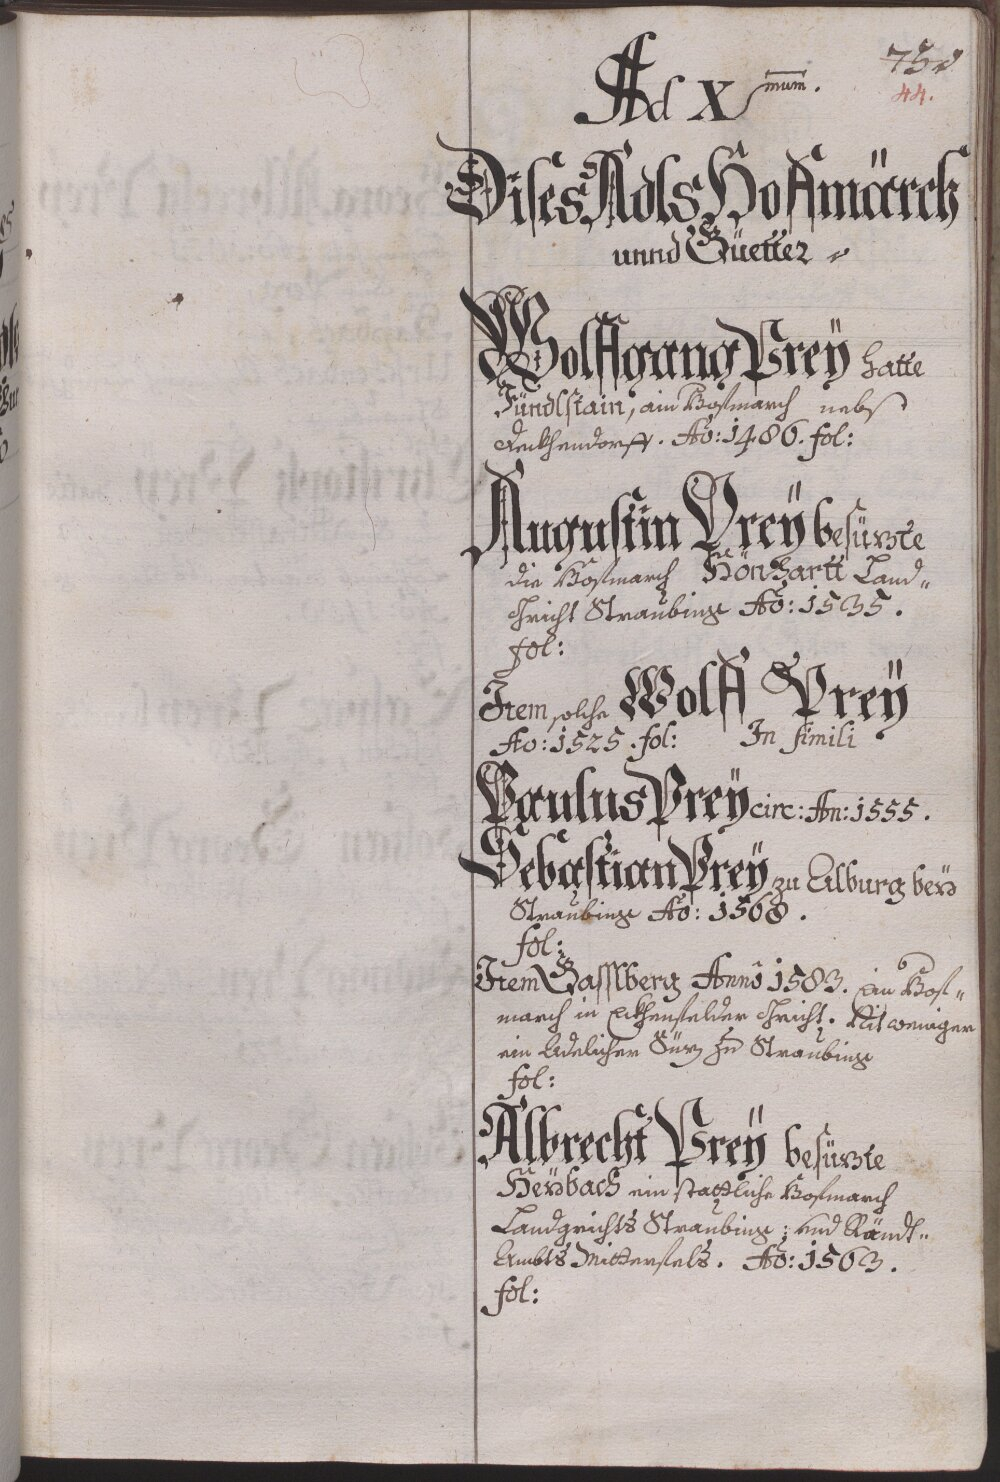 44.
Ad X mum.
Dises Adls Hoffmärck
unnd Güetter
Wolffgang Prey hatte
Fündlstain, ain Hofmarch nebst
Denkhendorff. Ao: 1486. fol:
Augustin Prey besüzte
die Hofmarch Hönhartt Land„
Gricht Straubing Ao: 1535.
fol:
Item solche Wolff Prey
Ao: 1525. fol: In simili
Paulus Prey circ: An: 1555.
Sebastian Prey zu Alburg bey
Straubing Ao: 1568.
fol:
Item Gasslberg Anno 1583. ein Hof„
march in Eckhenfelder Gricht. Nit weniger
ein Adelicher Süz zu Straubing
fol:
Albrecht Prey besüzte
Heybach ein stattliche Hofmarch
Landgrichts Straubing; und
Ambts Mitterfels. Ao: 1563.
fol: